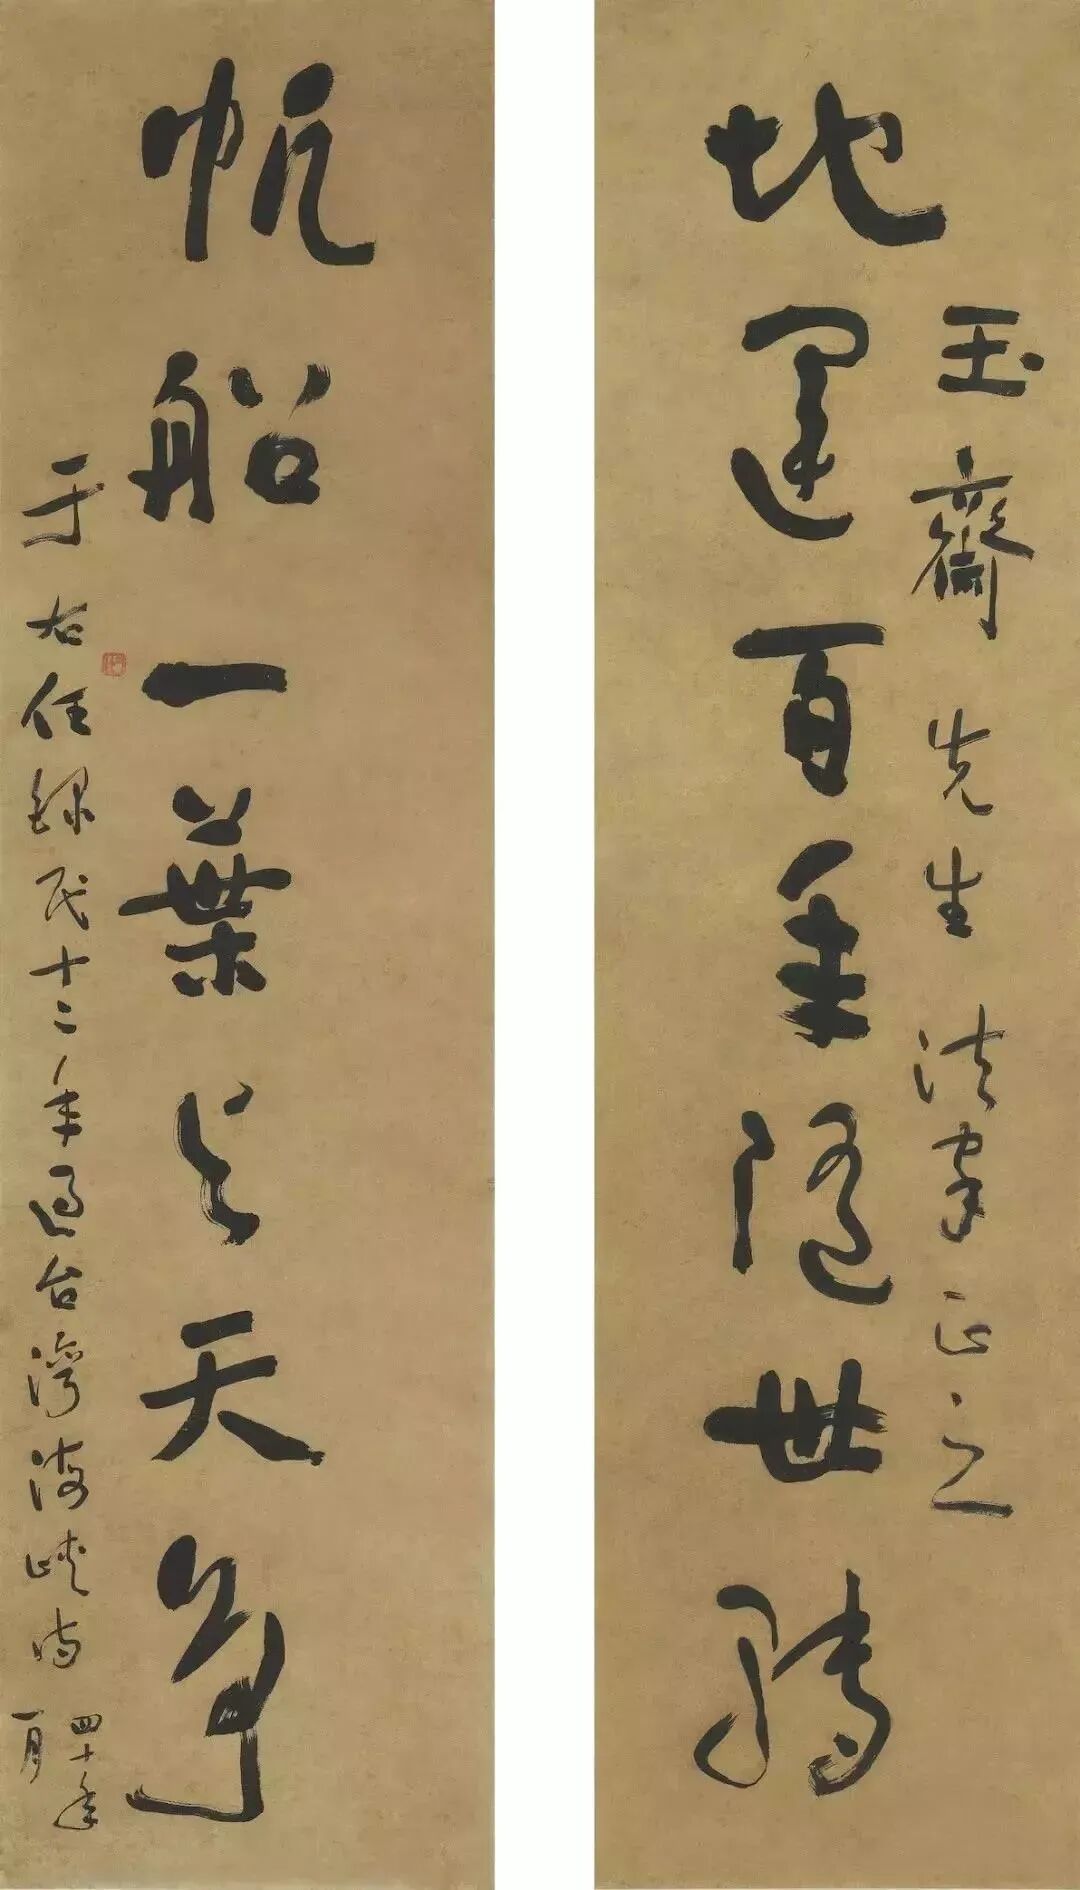 地運百年隨世轉
玉齋先生法家正之
帆船一葉與天爭
于右任錄民十二年過台灣海峽詩
四十年
一月